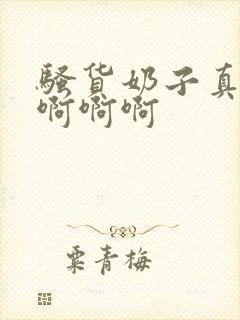 骚货奶子真
啊啊啊
粟青梅